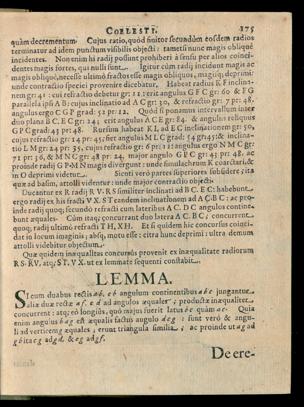 COELESTI. 175
quàm decrementum. Cujus ratio, quód finitor secundùm eosdem radios
terminatur ad idem punctum visibilis objecti: tametsi nunc magis obliquè
incidentes. Non enim hi radij possunt prohiberi à sensu per alios coinci-
dentes magis fortes, qui nulli sunt. Igitur cùm radij incidant magis ac
magis obliquè, necesse ultimó fractos esse magis obliquos, magisq; deprimi:
unde contractio speciei provenire
nem gr: 41: cui refractio debetur gr: 12
parallela ipsi A B: cujus inclinatio ad A C gr: 30, & refractio gr: 7 pr: 48.
angulus ergo C G P grad: 52 pr: 12. Quód si ponamus intervallum inter
duo plana B C E C gr: 24: erit angulus A C E gr: 84. & angulus reliquus
G P C grad: 43 pr: 48. Rursum habeat K L ad E C inclinationem gr: 50,
tio L M gr: 24 pr: 55, cujus refractio gr: 6 pr: 11: angulus ergo N M C gr:
71 pr: 36, & M N C gr: 48 pr: 24. major angulo G P C gr: 43 pr: 48. ac
proinde radij G P M N magis divergunt: unde simulachrum K contractum; &
in O deprimi videtur. Sicuti verò partes superiores subsidere; ita
quæ ad basim, attolli videntur: unde major contractio objecti.
Ducantur ex R radij R V. R S similiter inclinati ad B C. E C: habebunt
ergo radij ex his fracti V X. S T eandem inclinationem ad A C. B C: ac pro-
inde radij quoq; secundò refracti cum lateribus A C. D C angulos contine-
bunt æquales. Cùm itaq; concurrant duo latera A C. B C, concurrent
quoq, radij ultimò refracti T H, X H. Et si quidem hic concursus conti-
dat in locum imaginis; absq, motu esse: citra hunc deprimi: ultra demum
attolli videbitur objectum.
Quæ quidem inæqualitas concursûs provenit ex inæqualitate radiorum
R S. R V, atq; S T. V X. ut ex lemmate sequenti constabit.
LEMMA.
SI cum duabus rectis ab, cb angulum continentibus abc jungantur
aliæ duæ rectæ af, ed ad angulos æquales; productæ inæqualiter
concurrent: atq; eó longiùs, quó majus fuerit latus bc quàm ac. Quia
enim angulus bag est æqualis factus angulo deg: sunt verò & angu-
li ad verticem g æquales, erunt triangula similia; ac proinde ut ag ad
gb ita eg ad gd. & eg ad gf.
De ere-